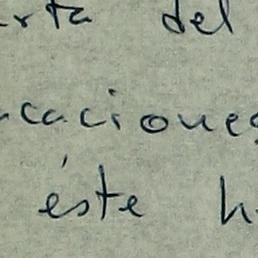 arta del
caciones
éste h